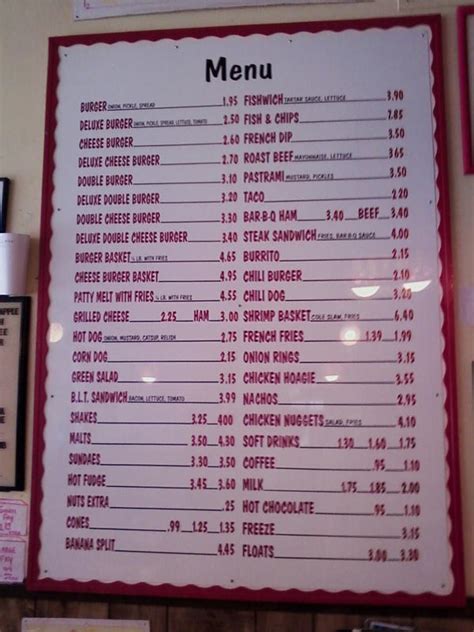 Menu
BURGER ONION, PICKLE, SPREAD 1.95
DELUXE BURGER ONION, PICKLE, SPREAD, LETTUCE, TOMATO 2.50
CHEESE BURGER 2.60
DELUXE CHEESE BURGER 2.70
DOUBLE BURGER 3.10
DELUXE DOUBLE BURGER 3.20
DOUBLE CHEESE BURGER 3.30
DELUXE DOUBLE CHEESE BURGER 3.40
BURGER BASKET ¼ LB. WITH FRIES 4.65
CHEESE BURGER BASKET ¼ LB. WITH FRIES 4.95
PATTY MELT WITH FRIES ¼ LB. WITH FRIES 4.55
GRILLED CHEESE 2.25 HAM 3.00
HOT DOG ONION, MUSTARD, CATSUP, RELISH 2.75
CORN DOG 2.15
GREEN SALAD 3.15
B.L.T. SANDWICH BACON, LETTUCE, TOMATO 3.99
SHAKES 3.25 4.00
MALTS 3.50 4.30
SUNDAES 3.30 3.50
HOT FUDGE 3.45 3.60
NUTS EXTRA .25
CONES .99 1.25 1.35
BANANA SPLIT 4.45
FISHWICH TARTAR SAUCE, LETTUCE 3.90
FISH & CHIPS 7.85
FRENCH DIP 3.50
ROAST BEEF MAYONNAISE, LETTUCE 3.65
PASTRAMI MUSTARD, PICKLES 3.50
TACO 2.20
BAR-B-Q HAM 3.40 BEEF 3.40
STEAK SANDWICH FRIES, BAR-B-Q SAUCE 4.00
BURRITO 2.15
CHILI BURGER 2.10
CHILI DOG 3.20
SHRIMP BASKET COLE SLAW, FRIES 6.40
FRENCH FRIES 1.39 1.99
ONION RINGS 3.15
CHICKEN HOAGIE 3.55
NACHOS 2.95
CHICKEN NUGGETS SALAD, FRIES 4.65
SOFT DRINKS 1.30 1.60 1.75
COFFEE .95 1.10
MILK 1.75 1.85 2.00
HOT CHOCOLATE .95 1.10
FREEZE 3.15
FLOATS 3.00 3.30